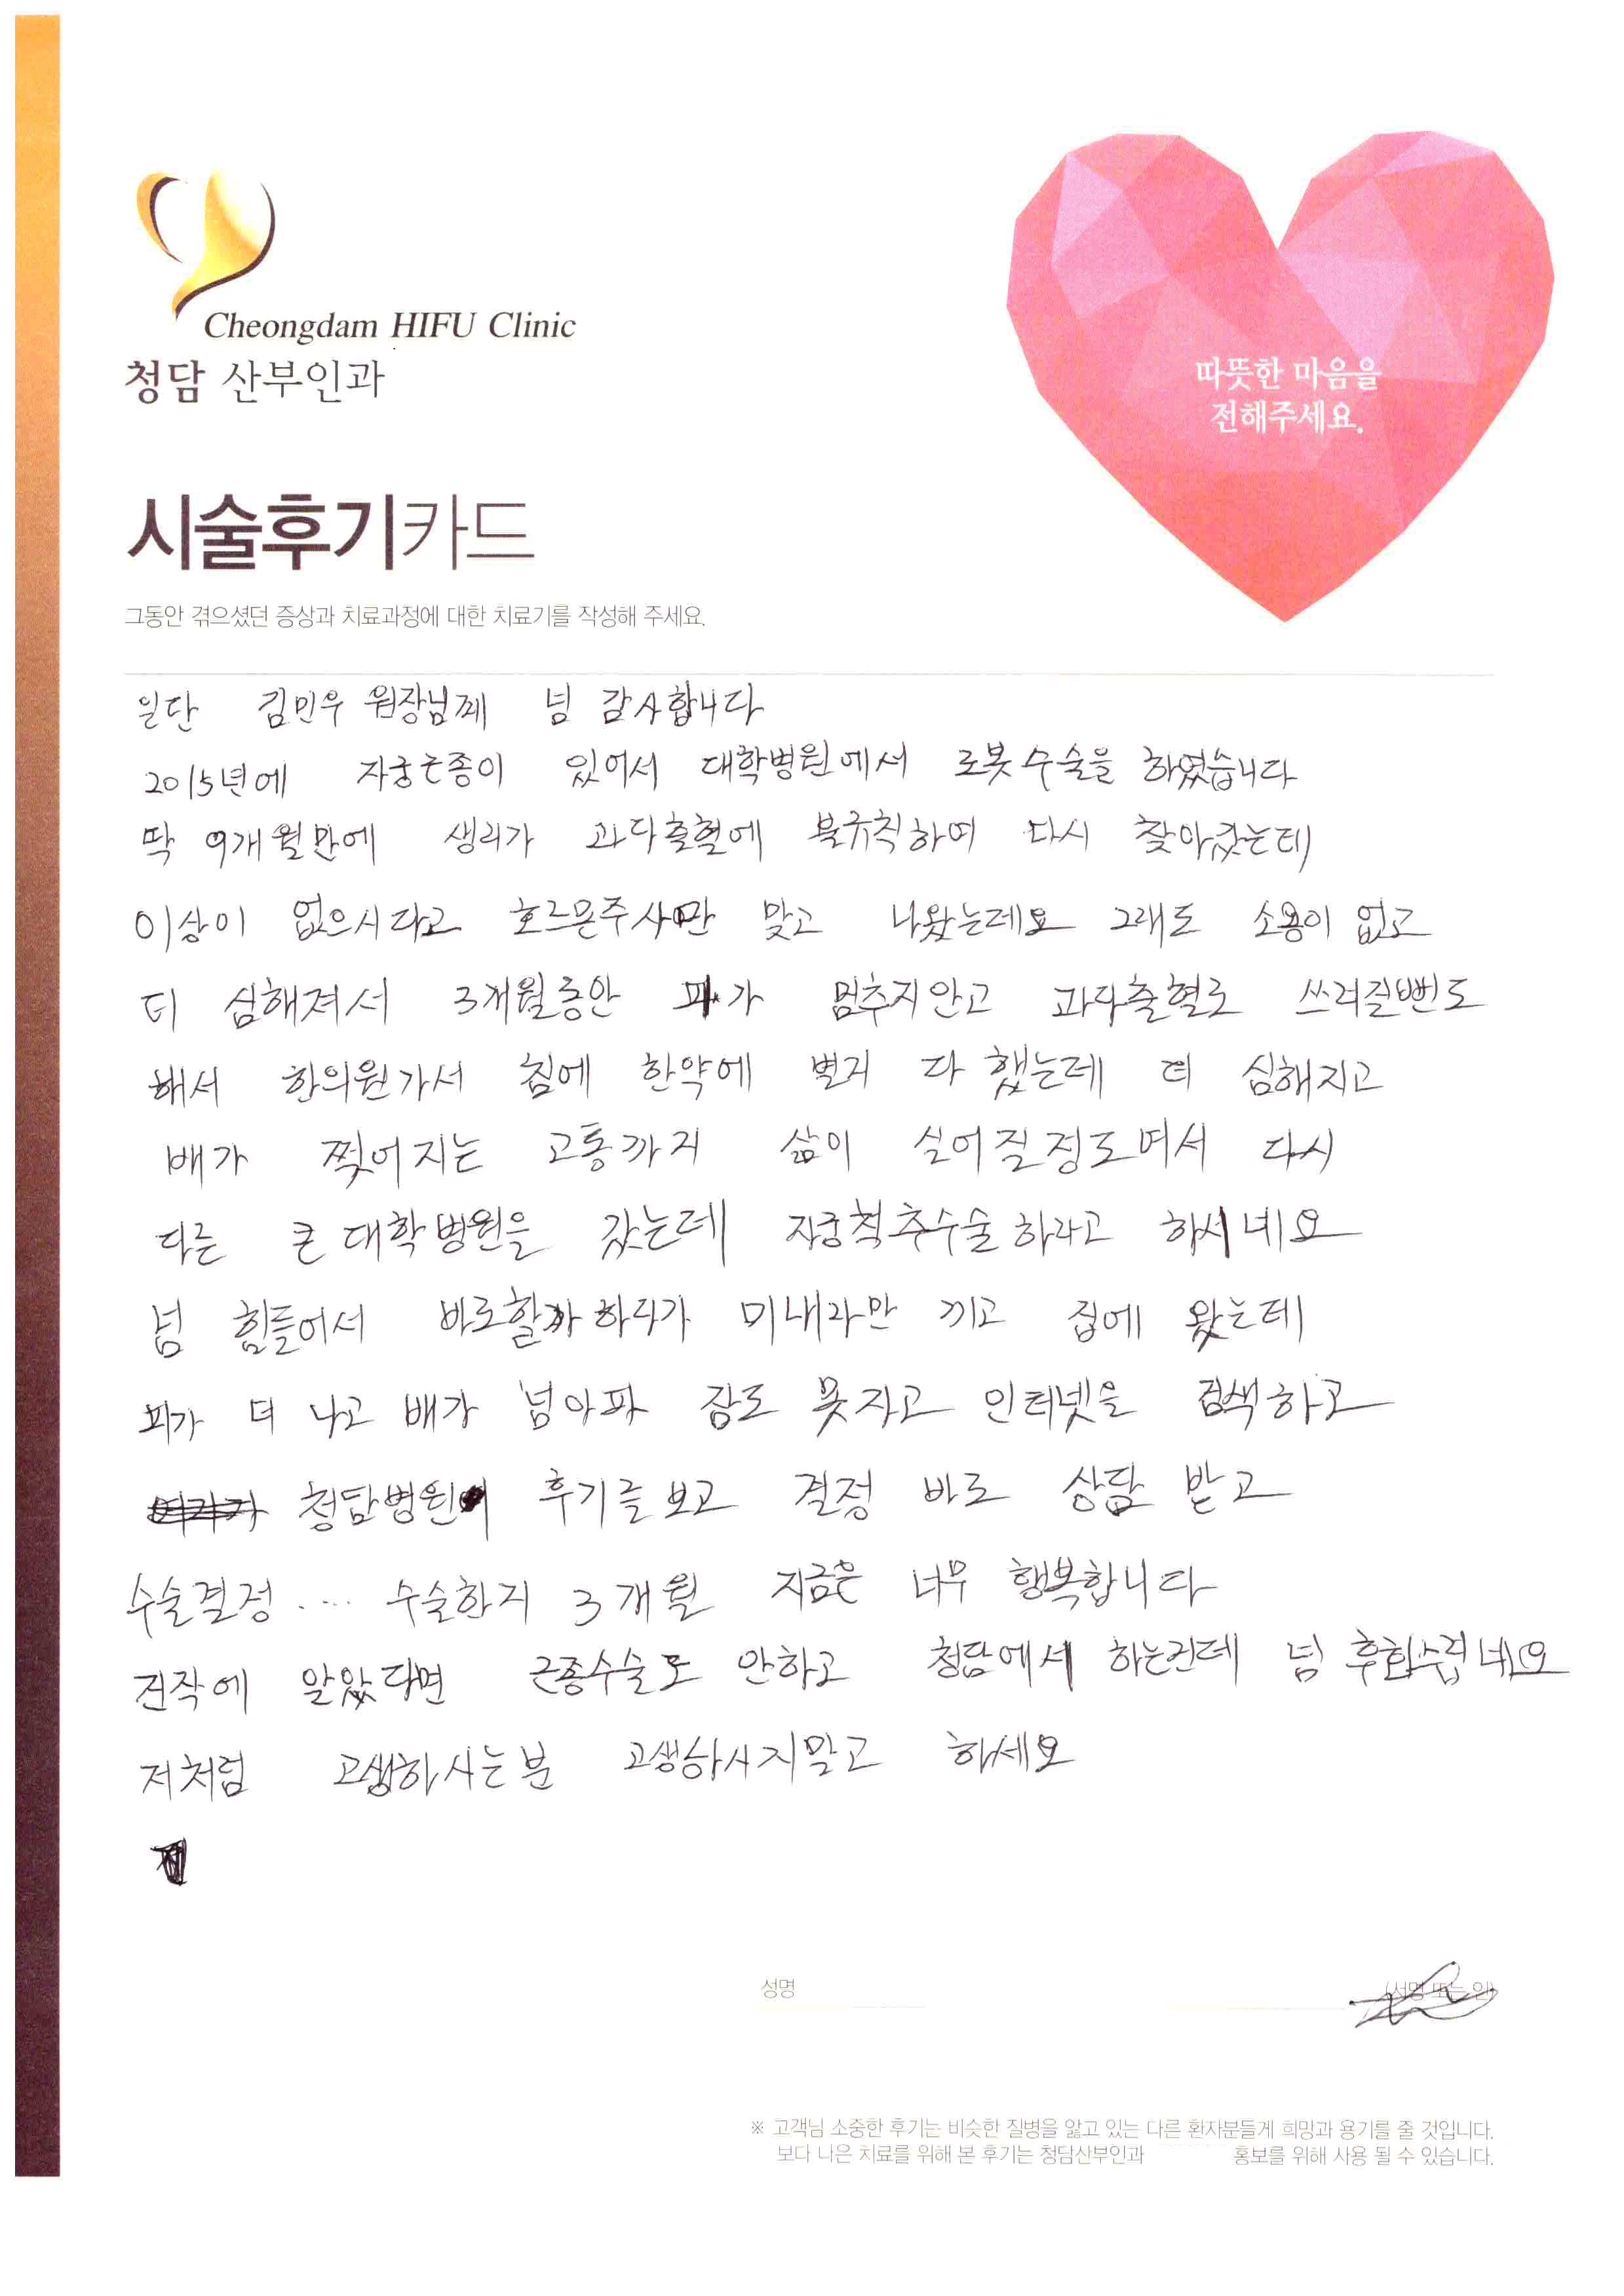 Cheongdam HIFU Clinic
청담 산부인과
따뜻한 마음을
전해주세요.
시술후기카드
그동안 겪으셨던 증상과 치료과정에 대한 치료기를 작성해 주세요.
일단 김민우 원장님께 넘 감사합니다
2015년에 자궁근종이 있어서 대학병원에서 로봇수술을 하였습니다
딱 9개월만에 생리가 과다출혈에 불규칙하여 다시 찾아갔는데
이상이 없으시다고 호르몬주사만 맞고 나왔는데요 그래도 소용이 없고
더 심해져서 3개월동안 피가 멈추지안고 과다출혈로 쓰러질뻔도
해서 한의원가서 침에 한약에 별지 다 했는데 더 심해지고
배가 찢어지는 고통까지 삶이 실어질정도여서 다시
다른 큰 대학병원을 갔는데 자궁척추수술하라고 하시네요
넘 힘들어서 바로할까하다가 미내라만 끼고 집에 왔는데
피가 더 나고 배가 넘아파 잠도 못자고 인터넷을 검색하고
청담병원에 후기를 보고 결정 바로 상담 받고
수술결정 .... 수술한지 3개월 지금은 너무 행복합니다
진작에 알았다면 근종수술도 안하고 청담에서 하는건데 넘 후회스럽네요
저처럼 고생하시는분 고생하시지말고 하세요
성명
(서명 또는 인)
※ 고객님 소중한 후기는 비슷한 질병을 앓고 있는 다른 환자분들게 희망과 용기를 줄 것입니다.
보다 나은 치료를 위해 본 후기는 청담산부인과 홍보를 위해 사용 될 수 있습니다.